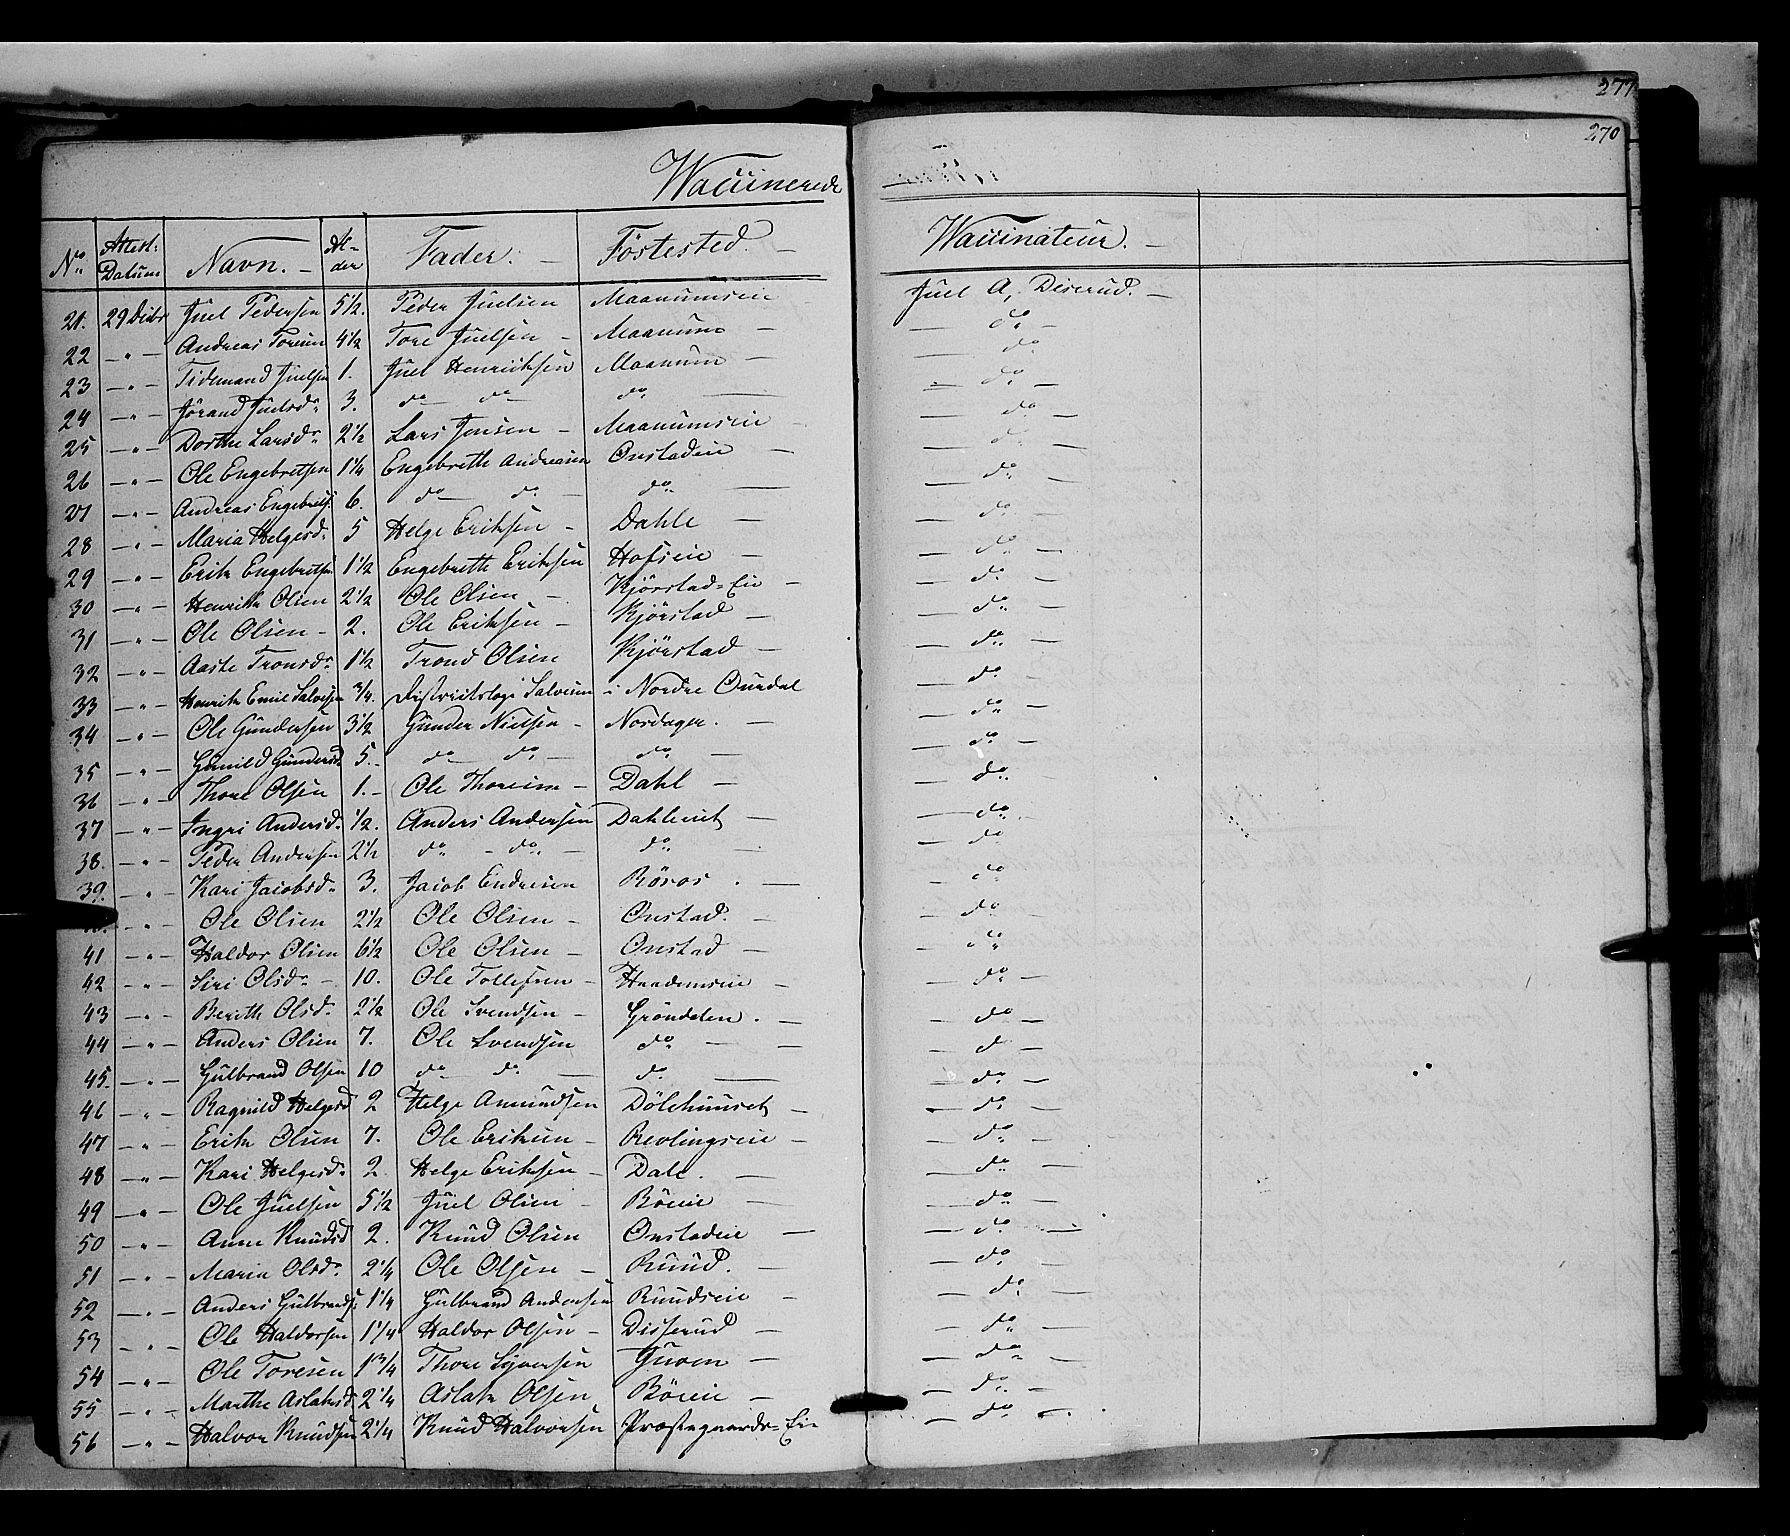 277
270
Waccinerede
No. Attest: Datum Navn. Al-der Fader. Föstested. Waccinateur.
21. 29 Decbr Juel Pedersen 5½. Peder Juelsen Maanumseie Juel A. Diserud.
22 — " — Andreas Toresen 4½ Tore Juelsen Maanum do
23 — " — Tidemand Juelsen 1. Juel Henriksen Maanum do
24 — " — Jörand Juelsdr 3. do do do do
25 — " — Dorthe Larsdr 2½ Lars Jensen Maanumseie do
26 — " — Ole Engebretsen 1¼ Engebreth Andreasen Onstadeie do
27 — " — Andreas Engebrets. 6. do do do do
28 — " — Maria Helgesd. 5 Helge Eriksen Dahle do
29 — " — Erik Engebretsen 1½ Engebreth Eriksen Hofseie do
30 — " — Henrik Olsen 2½ Ole Olsen Kjörstad=Eie do
31 — " — Ole Olsen 2. Ole Eriksen Kjörstad do
32 — " — Aaste Tronsdr 1½ Trond Olsen Kjörstad do
33 — " — Henrik Emil Salvesen ¾. Districtslæge Salvesen i Nordre Ourdal do
34 — " — Ole Gundersen 3½ Gunder Nielsen Nordager. do
35 — " — Gunild Gundersd. 5. do do do do
36 — " — Thore Olsen 1. Ole Thoresen Dahl do
37 — " — Ingri Andersd. ½. Anders Andersen Dahleeiet do
38. — " — Peder Andersen 2½ do do do do
39. — " — Kari Jacobsd. 3. Jacob Endresen Röros. do
— " — Ole Olsen 2½ Ole Olsen Onstad. do
41 — " — Haldor Olsen 6½ Ole Olsen Onstad do
42 — " — Siri Olsdr 10. Ole Tollefsen Haademseie do
43 — " — Berith Olsd. 2½ Ole Svendsen Gröndalen. do
44 — " — Anders Olsen 7. Ole Svendsen do do
45. — " — Gulbrand Olsen 10 do do do do
46 — " — Ragnild Helgesd 2 Helge Amundsen Dölehuuset do
47 — " — Erik Olsen 7. Ole Eriksen Revlingseie do
48 — " — Kari Helgesd. 2 Helge Eriksen Dale. do
49 — " — Ole Juelsen 5½ Juel Olsen Böeie do
50 — " — Anne Knudsd 2. Knud Olsen Onstadeie do
51 — " — Maria Olsdr. 2¼ Ole Olsen Ruud. do
52 — " — Anders Gulbrands. 1¼ Gulbrand Andersen Ruudseie do
53 — " — Ole Haldorsen 1¼ Haldor Olsen Disserud do
54 — " — Ole Toresen 1¾ Thore Syversen do
55 — " — Marthe Aslaksd. 2¼ Aslak Olsen Böeie do
56 — " — Halvor Knudsen 2¼ Knud Halvorsen Præstegaards=Eie do